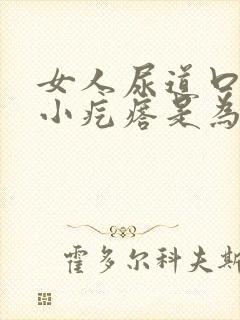 女人尿道口
小疙瘩是為
霍多尔科夫斯